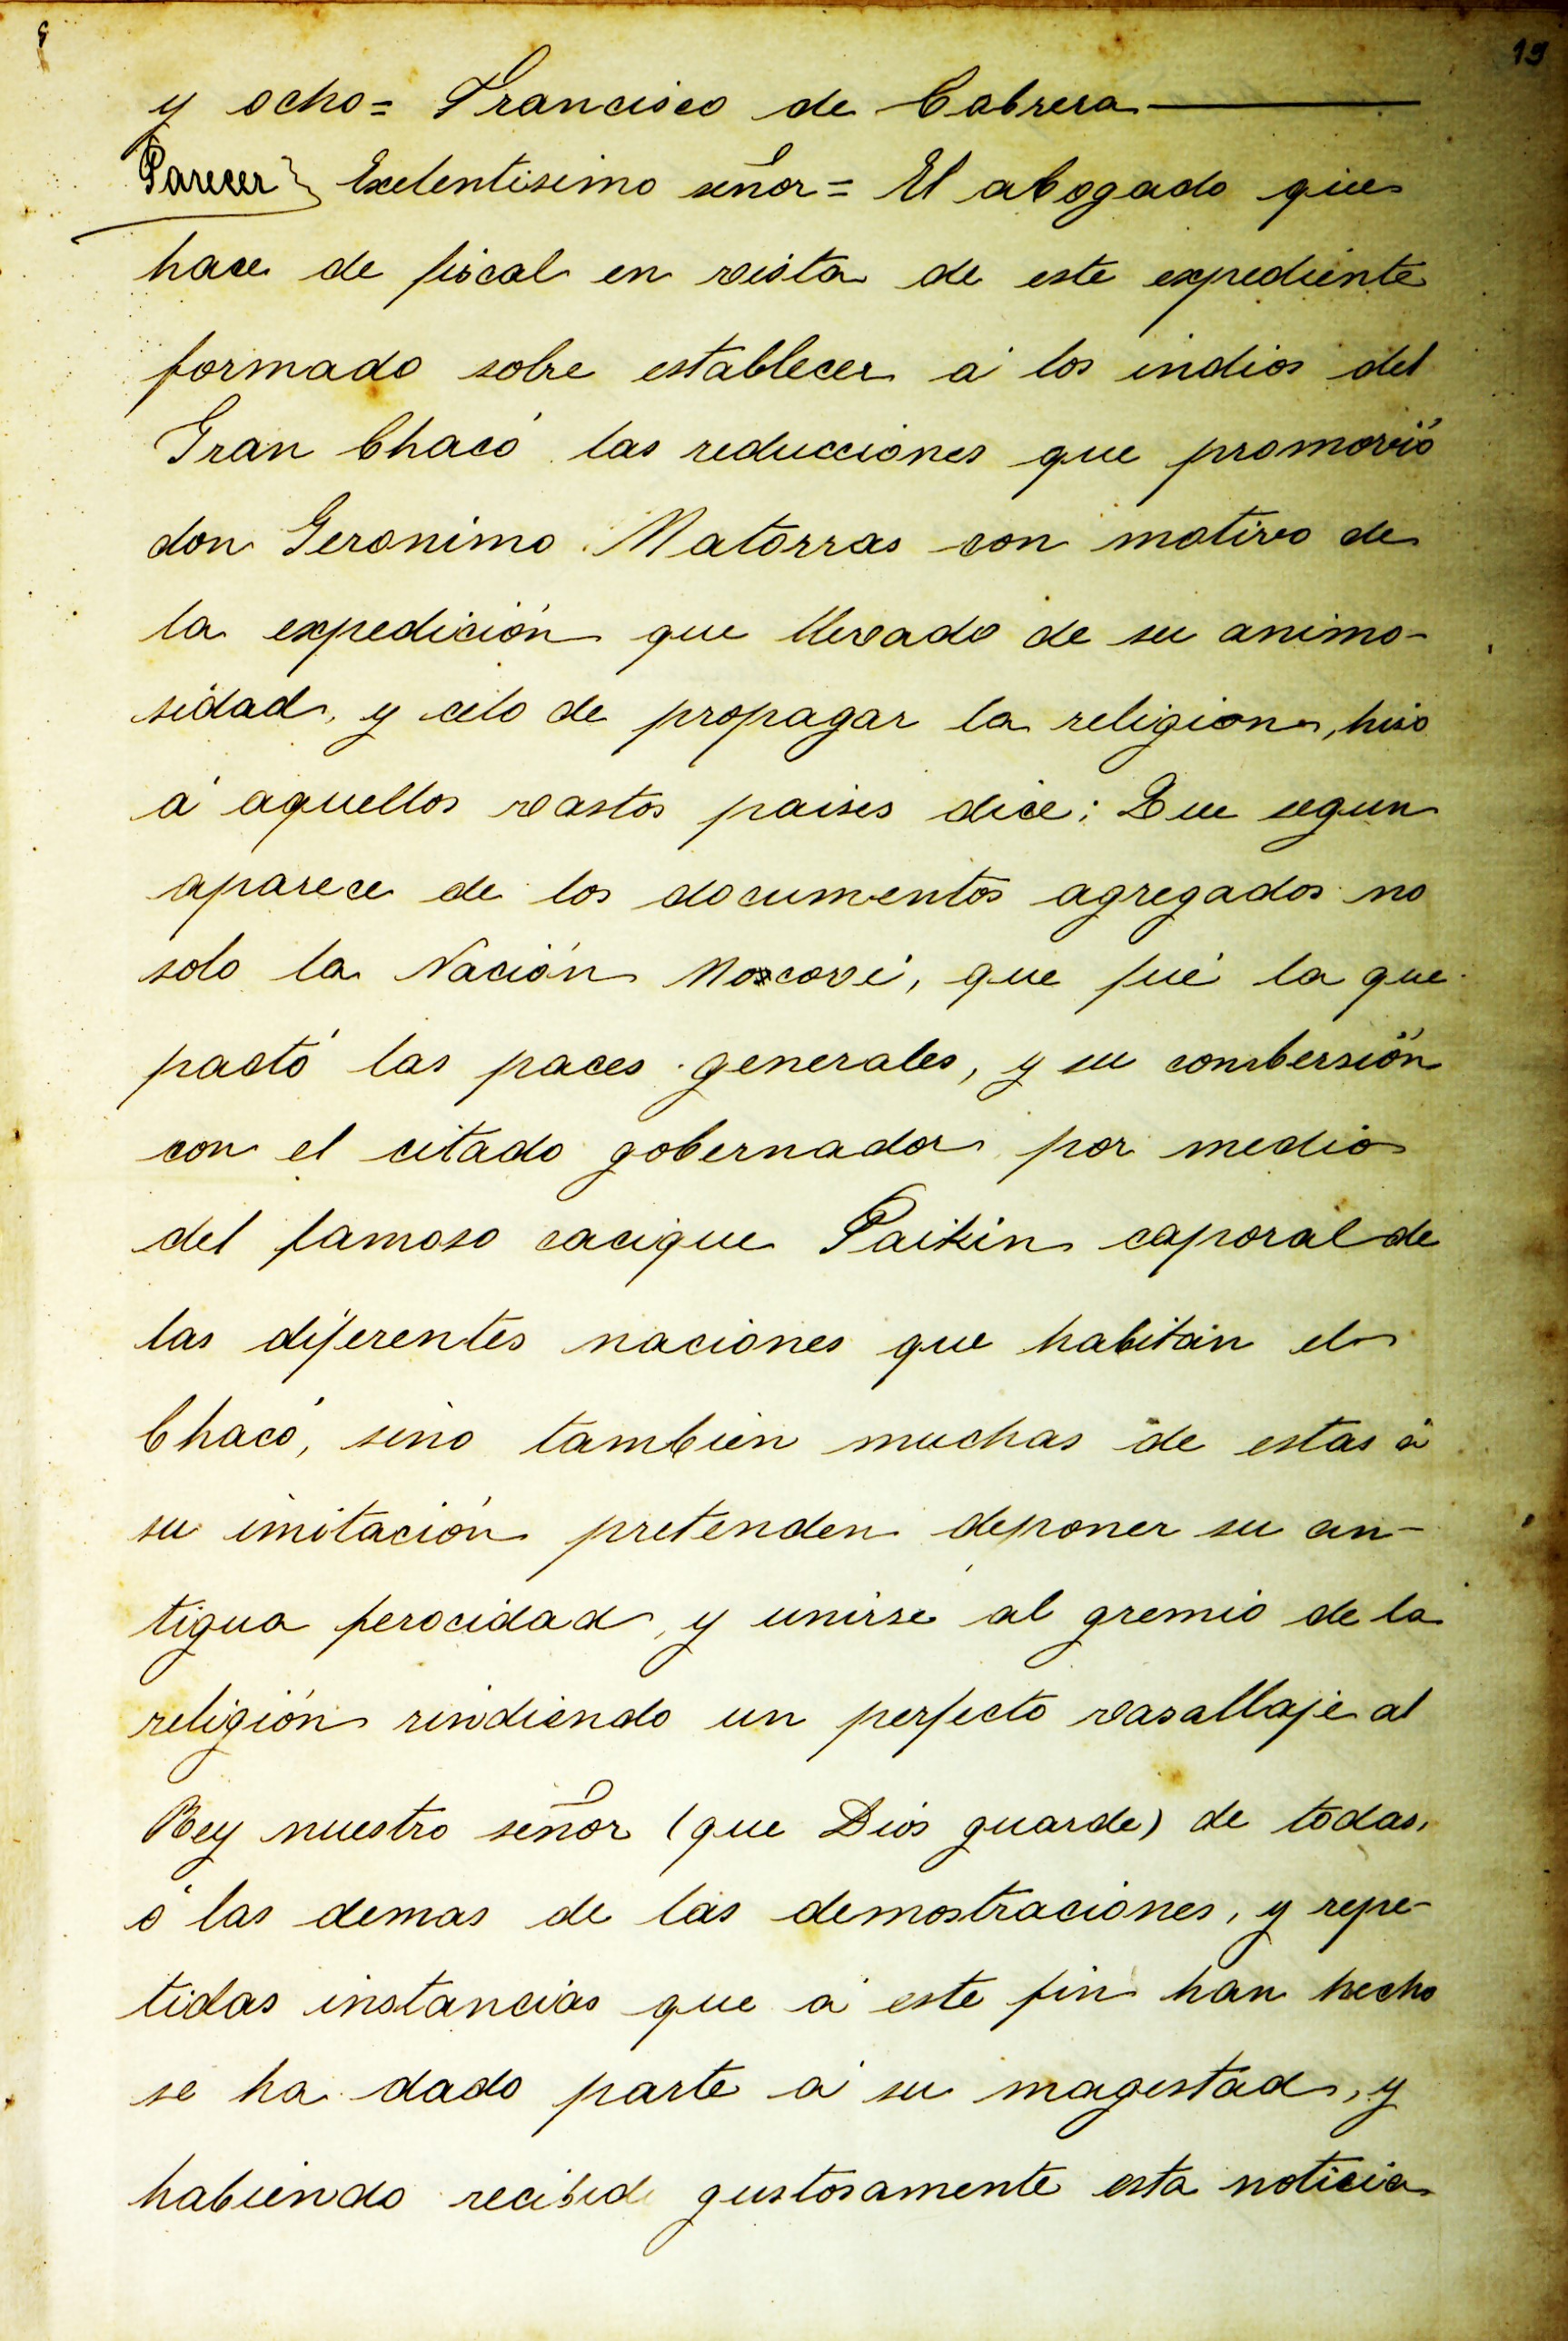 19
y ocho= Francisco de Cabrera
Parecer} Exelentisimo señor= El abogado que
hace de fiscal en vista de este expediente
formado sobre establecer á los indios del
Gran Chacó las reducciones que promovió
don Geronimo Matorras con motivo de
la expedición que llevado de su animo-
sidad, y celo de propagar la religion, hiso
á aquellos vastos paises dice: Que segun
aparece de los documentos agregados no
solo la Nación Mocoví, que fué la que
pactó las paces generales, y su combersión
con el citado gobernador por medio
del famoso cacique Paikin caporal de
las diferentes naciones que habitan el
Chacó, sino tambien muchas de estas á
su imitación pretenden deponer su an-
tigua ferocidad, y unirse al gremio de la
religión rindiendo un perfecto vasallaje al
Rey nuestro señor (que Dios guarde) de todas,
ó las demas de las demostraciones, y repe-
tidas instancias que á este fin han hecho
se ha dado parte á su magestad, y
habiendo recibido gustosamente esta noticia